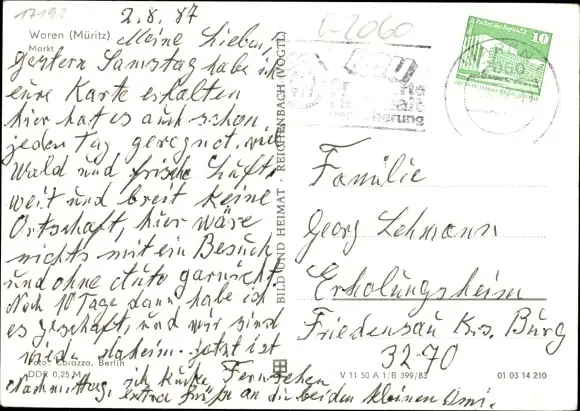 17192
2.8.87
L-2060
Waren (Müritz)
Markt
Meine Lieben,
gestern Samstag habe ich
eure Karte erhalten
hier hat es auch schon
jeden Tag geregnet, viel
Wald und frische Luft,
weit und breit keine
Ortschaft, hier wäre
nichts mit ein Besuch
und ohne Auto garnicht.
Noch 10 Tage dann habe ich
es geschaft, und wir sind
wieder daheim. jetzt ist
Nachmittag, ich kucke Fernsehen
extra Grüße an die beiden kleinen
Foto: Corazza, Berlin
DDR 0,25 M
BILD UND HEIMAT · REICHENBACH (VOGTL)
Palast der Republik
10
Familie
Georg Lehmann
Erholungsheim
Friedensau Krs. Burg
3270
V 11 50 A 1/B 399/83
01 03 14 210